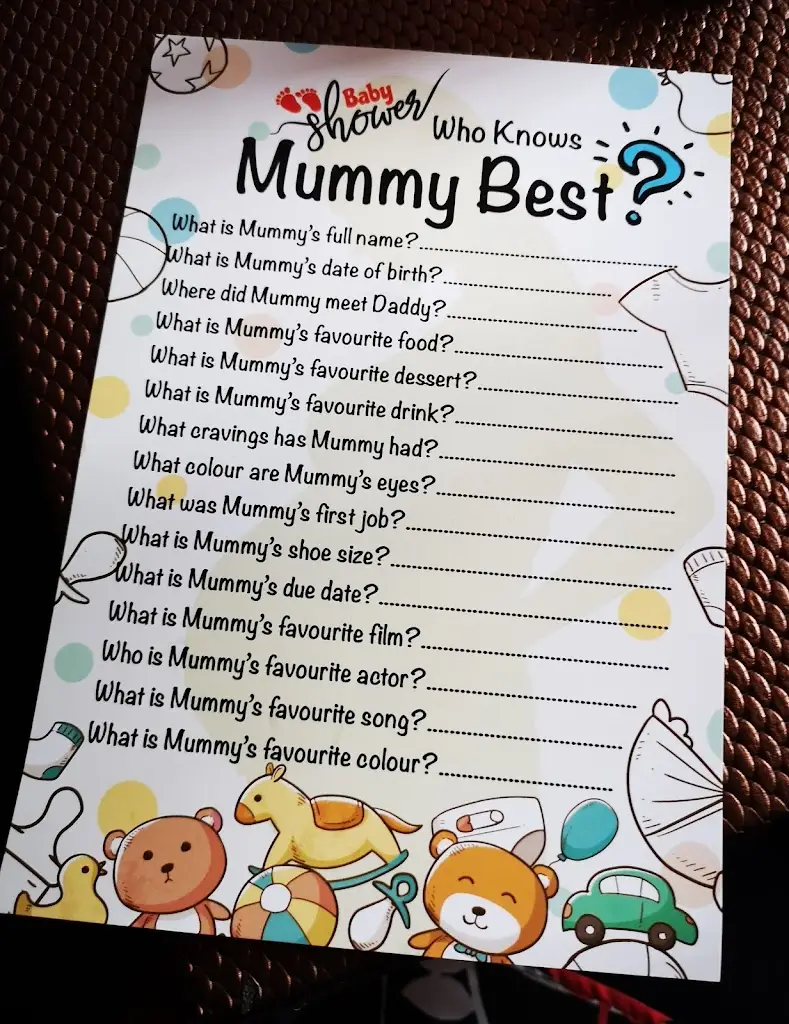 Baby
shower
Who Knows
Mummy Best?
What is Mummy's full name?
What is Mummy's date of birth?
Where did Mummy meet Daddy?
What is Mummy's favourite food?
What is Mummy's favourite dessert?
What is Mummy's favourite drink?
What cravings has Mummy had?
What colour are Mummy's eyes?
What was Mummy's first job?
What is Mummy's shoe size?
What is Mummy's due date?
What is Mummy's favourite film?
Who is Mummy's favourite actor?
What is Mummy's favourite song?
What is Mummy's favourite colour?